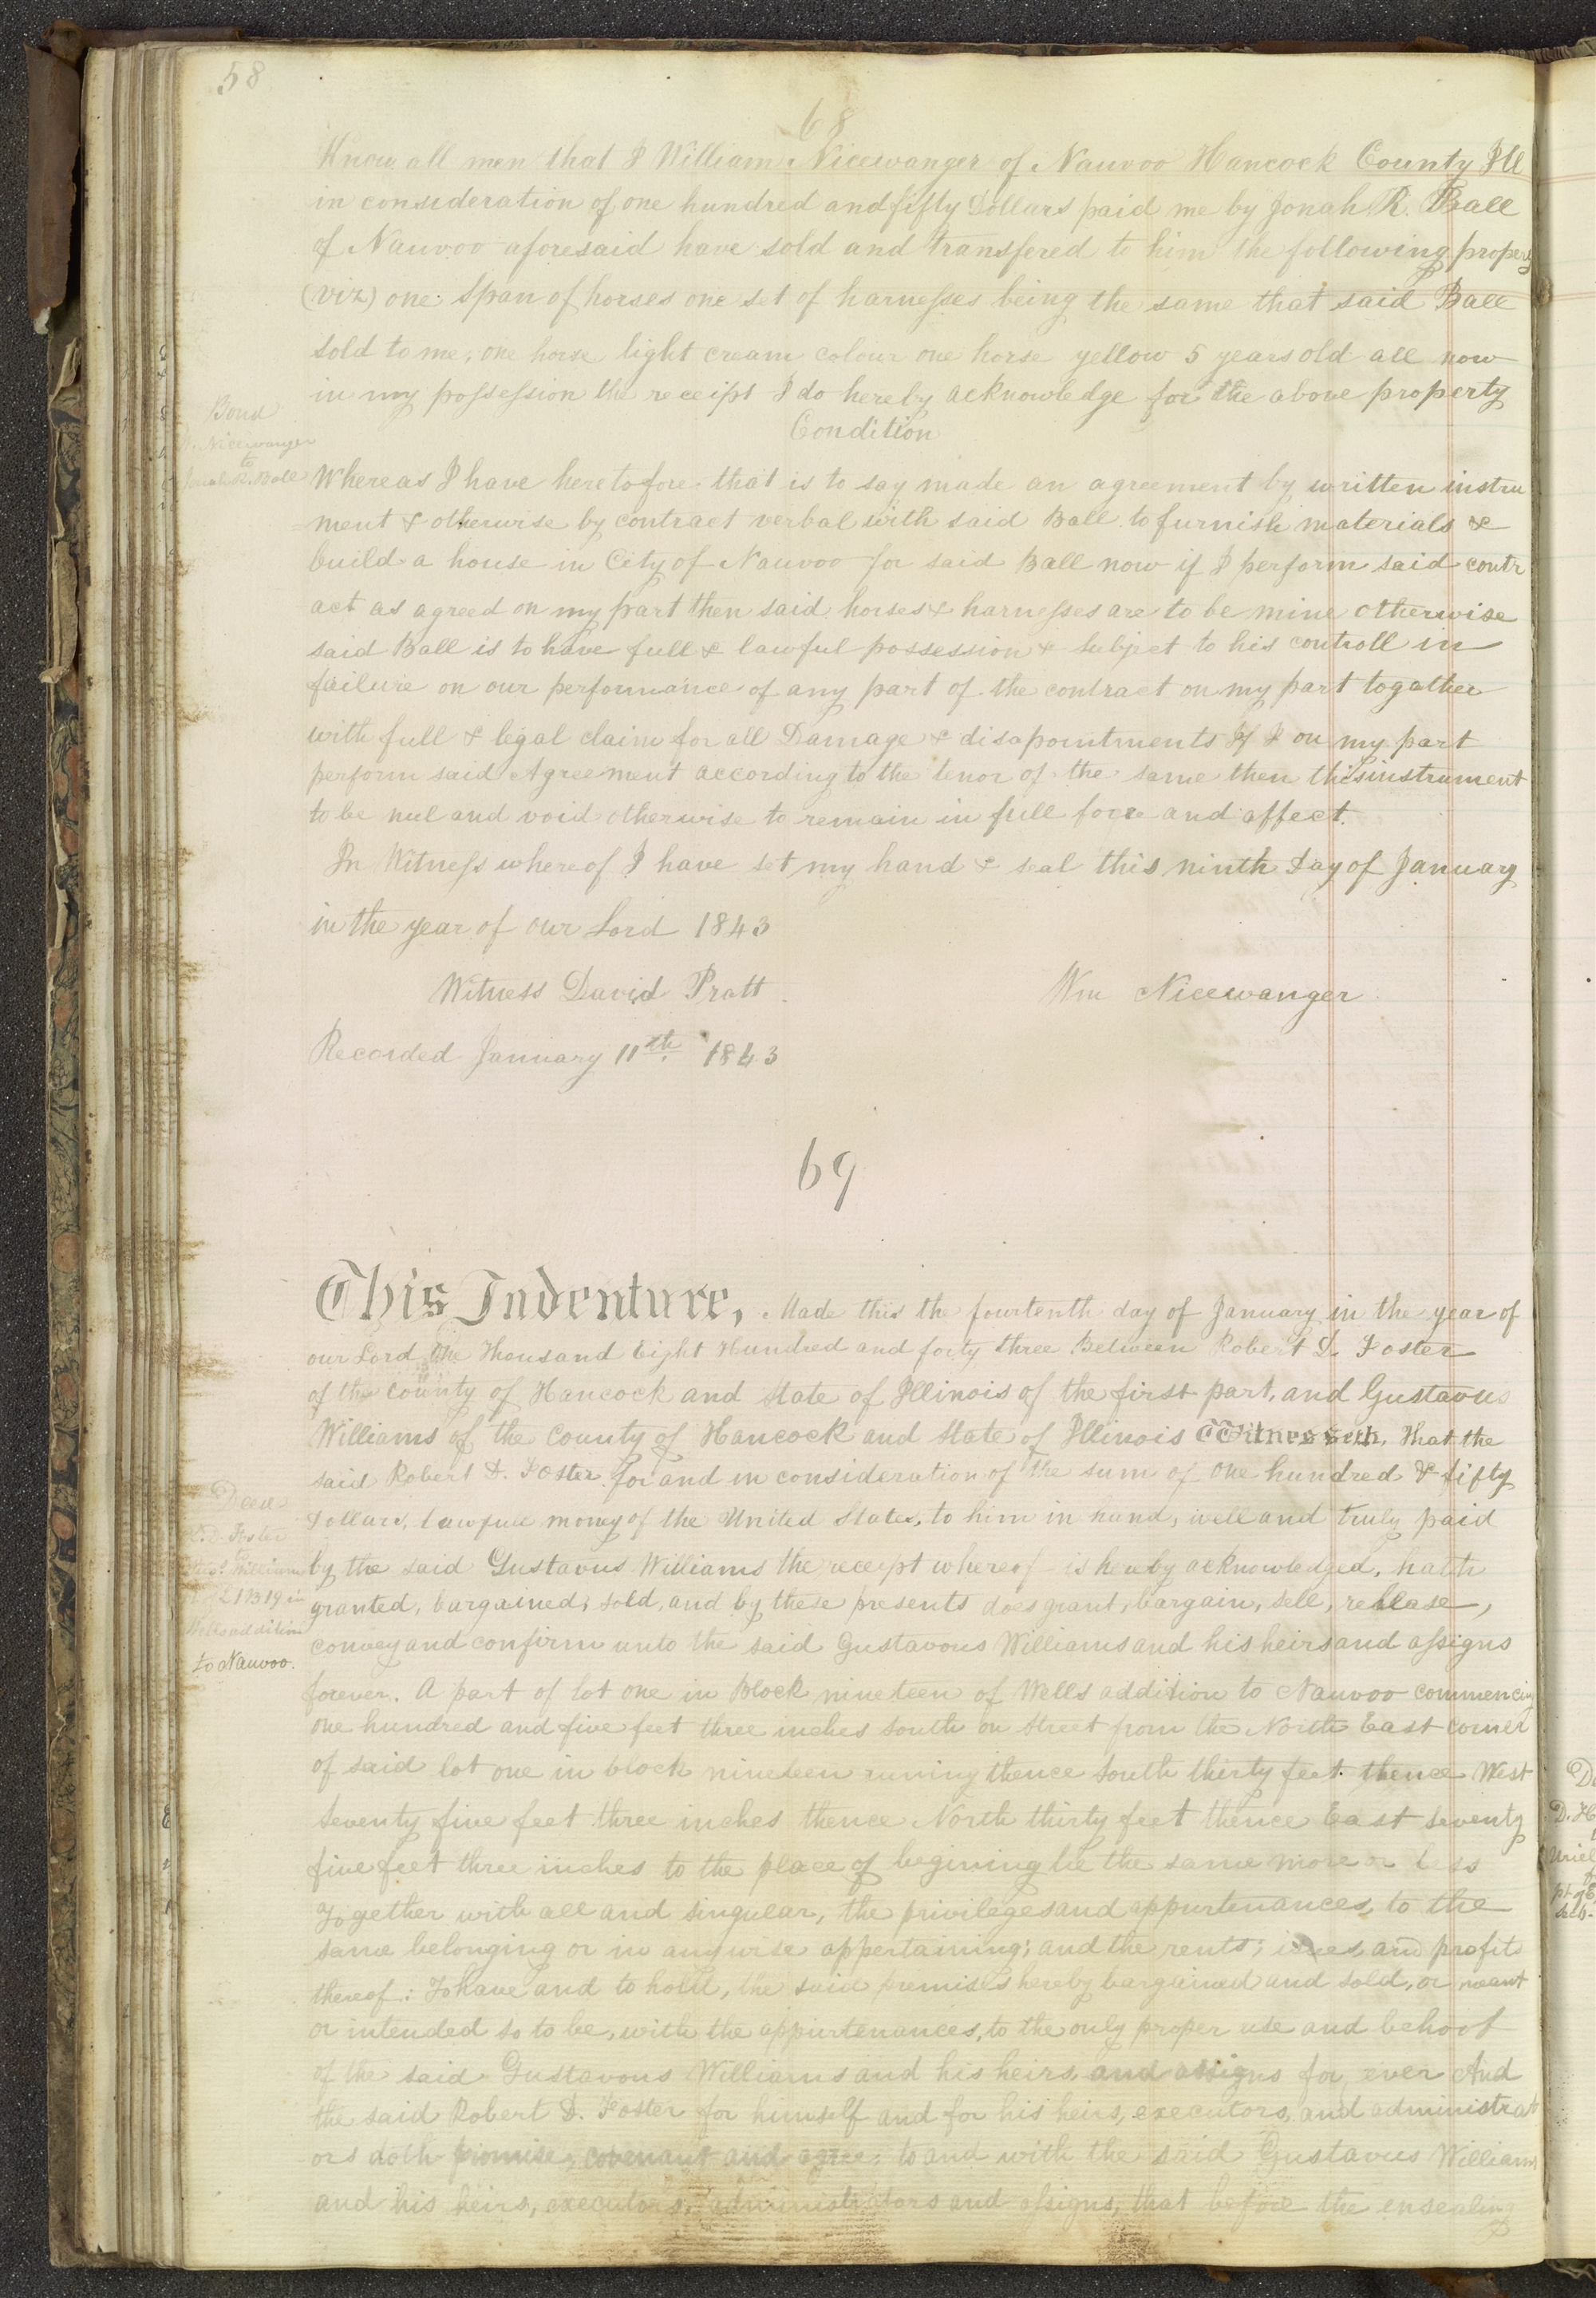 58
68
Know all men that I William Nicewanger of Nauvoo Hancock County Ill
in consideration of one hundred and fifty Dollars paid me by Jonah R. Ball
of Nauvoo aforesaid have sold and transfered to him the following property
(viz) one Span of horses one set of harnesses being the same that said Ball
sold to me, one horse light cream colour one horse yellow 5 years old all now
in my possession the receipt I do hereby acknowledge for the above property
Condition
Bond
W. Nicewanger
to
Jonah R. Ball
Whereas I have heretofore that is to say made an agreement by written instru
ment & otherwise by contract verbal with said Ball to furnish materials &
build a house in City of Nauvoo for said Ball now if I perform said contr
act as agreed on my part then said horses & harnesses are to be mine otherwise
said Ball is to have full & lawful possession & subject to his controll in
failure on our performance of any part of the contract on my part togather
with full & legal claim for all Damage & disapointments If I on my part
perform said Agreement according to the tenor of the same then this instrument
to be nul and void otherwise to remain in full force and affect.
In Witness whereof I have set my hand & seal this ninth Day of January
in the year of our Lord 1843
Witness David Pratt
Wm Nicewanger
Recorded January 11th 1843
69
This Indenture, Made this the fourtenth day of January in the year of
our Lord One Thousand Eight Hundred and forty three Between Robert D. Foster
of the County of Hancock and State of Illinois of the first part, and Gustavus
Williams of the County of Hancock and State of Illinois Witnesseth, That the
said Robert D. Foster for and in consideration of the sum of One hundred & fifty
Dollars, lawfull money of the United States, to him in hand, well and truly paid
by the said Gustavus Williams the receipt whereof is hereby acknowledged, hath
granted, bargained, sold, and by these presents does grant, bargain, sell, release,
convey and confirm unto the said Gustavous Williams and his heirs and assigns
Deed
R. D. Foster
Gus. Williams
L 1 B 19 in
Wells addition
to Nauvoo.
forever. A part of lot one in Block nineteen of Wells addition to Nauvoo commencing
one hundred and five feet three inches South on Street from the North East corner
of said lot one in block nineteen runing thence South thirty feet. thence West
Seventy five feet three inches thence North thirty feet thence East Seventy
five feet three inches to the place of begining be the same more or less
Together with all and singular, the privileges and appurtenances, to the
same belonging or in anywise appertaining; and the rents; isues, and profits
thereof: To have and to hold, the said premises hereby bargained and sold, or meant
or intended so to be, with the appurtenances, to the only proper use and behoof
of the said Gustavous Williams and his heirs, and assigns for ever And
the said Robert D. Foster for himself and for his heirs, executors, and administrat
ors doth promise, covenant and agree; to and with the said Gustavus Williams
and his heirs, executors, administrators and assigns, that before the ensealing
D. H
Uriel